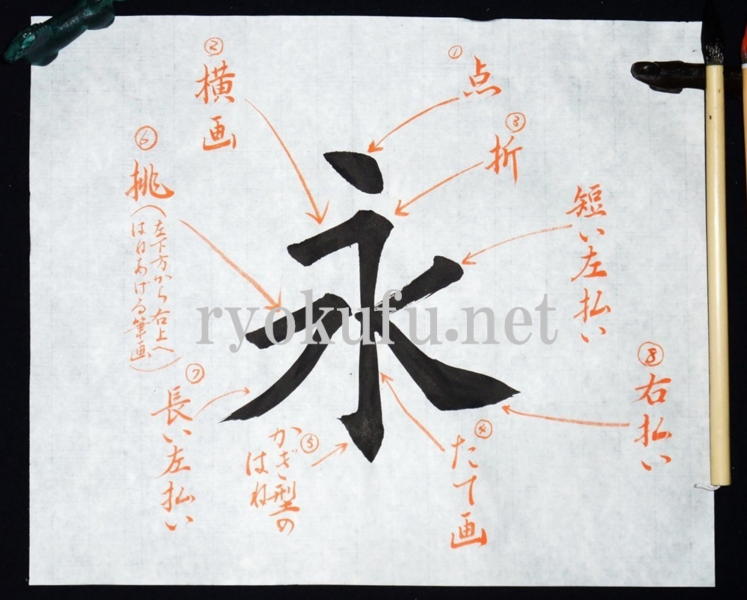 ① 点
② 横画
③ 折
短い左払い
⑥ 挑
(左下方から右上へ
はねあげる筆画)
永
ryokufu.net
⑧ 右払い
⑦ 長い左払い
⑤ かぎ型の
はね
④ たて画